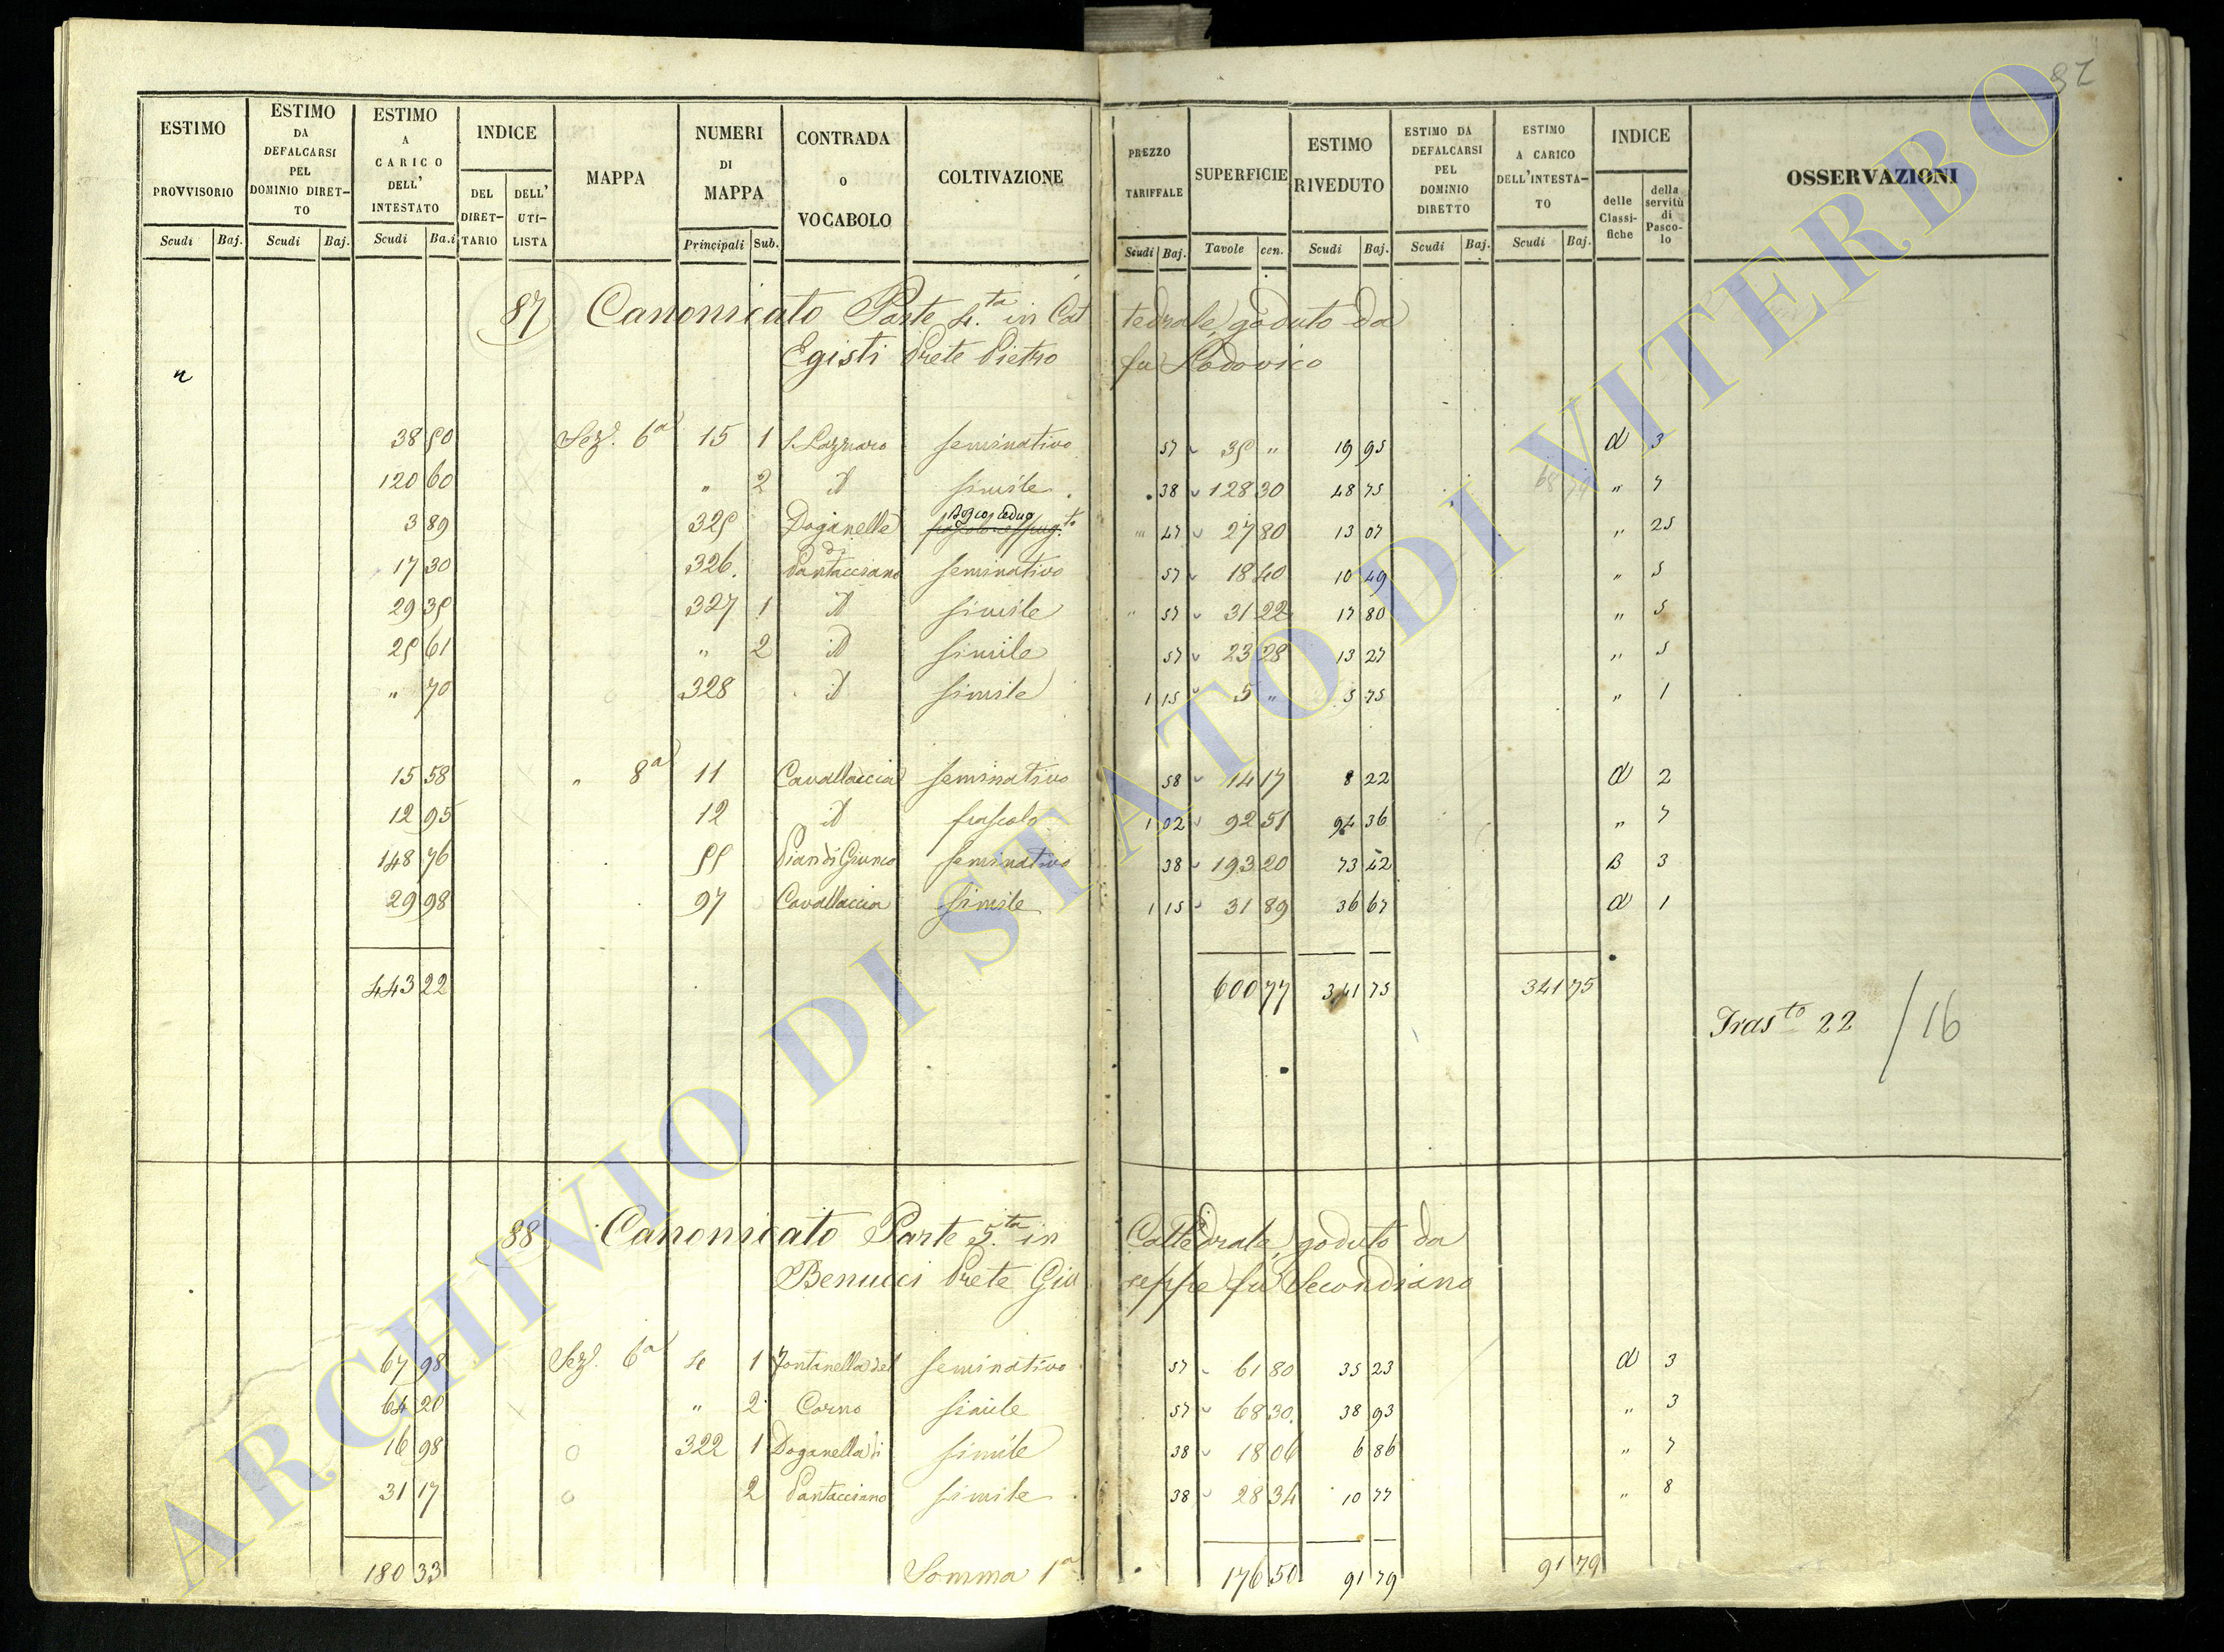 82
ESTIMO PROVVISORIO Scudi Baj.
ESTIMO DA DEFALCARSI PEL DOMINIO DIRET-TO Scudi Baj.
ESTIMO A CARICO DELL' INTESTATO Scudi Ba.i
INDICE DEL DIRET-TARIO DELL' UTI-LISTA
MAPPA
NUMERI DI MAPPA Principali Sub.
CONTRADA o VOCABOLO
COLTIVAZIONE
PREZZO TARIFFALE Scudi Baj.
SUPERFICIE Tavole cen.
ESTIMO RIVEDUTO Scudi Baj.
ESTIMO DA DEFALCARSI PEL DOMINIO DIRETTO Scudi Baj.
ESTIMO A CARICO DELL'INTESTA-TO Scudi Baj.
INDICE delle Classi-fiche della servitù di Pasco-lo
OSSERVAZIONI
87 Canonicato Parte 4.ta in Cat tedrale, goduto da
Egisti Prete Pietro fu Lodovico
38 50 Sez. 6a 15 1 S. Lazzaro seminativo 57 35 " 19 95 d 3
120 60 " 2 id simile 38 128 30 48 75 " 7
3 89 325 Doganella Bosco ceduo 47 27 80 13 07 " 25
17 30 326. di Pantacciano seminativo 57 18 40 10 49 " 5
29 35 327 1 id simile " 57 31 22 17 80 " 5
25 61 " 2 id simile 57 23 28 13 27 " 5
" 70 328 id simile 1 15 5 " 5 75 " 1
15 58 " 8a 11 Cavallaccia seminativo 58 14 17 8 22 d 2
12 95 12 id pascolo 1 02 92 51 94 36 " 7
148 76 55 Pian di Giunco seminativo 38 193 20 73 42 B 3
29 98 97 Cavallaccia simile 1 15 31 89 36 67 d 1
443 22 600 77 341 75 341 75
Tras.to 22 / 16
88 Canonicato Parte 5.ta in Cattedrale, goduto da
Benucci Prete Giu seppe fu Secondiano
67 98 Sez. 6a 4 1 Fontanella del seminativo 57 61 80 35 23 d 3
64 20 " 2 Corno simile 57 68 30 38 93 " 3
16 98 322 1 Doganella di simile 38 18 06 6 86 " 7
31 17 2 Pantacciano simile 38 28 34 10 77 " 8
180 33 Somma 1a 176 50 91 79 91 79
ARCHIVIO DI STATO DI VITERBO